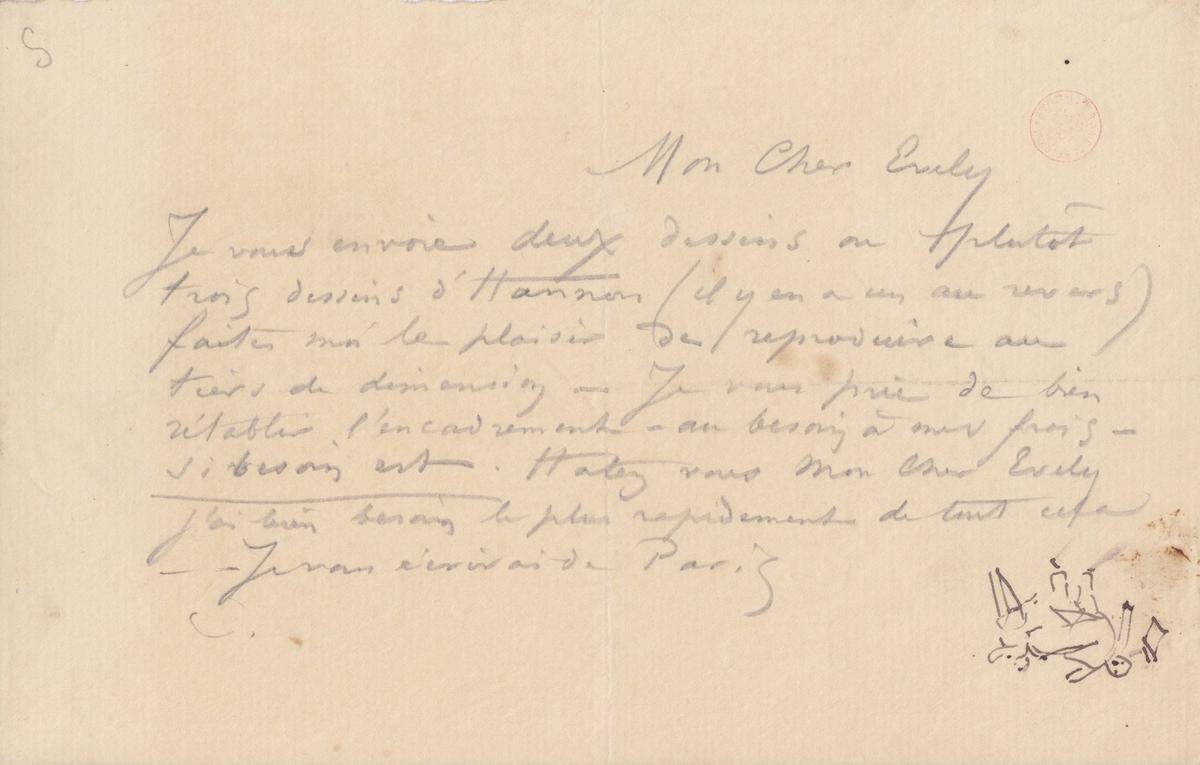 Mon Cher Evely
Je vous envoie deux dessins ou plutôt
trois dessins d'Hannon (il y en a un au revers)
faites moi le plaisir de reproduire au
tiers de dimension — Je vous prie de bien
rétablir l'encadrement — au besoin à mes frais —
si besoin est. Hatez vous Mon Cher Evely
j'ai bien besoin le plus rapidement de tout cela
— Je vous écrirai de Paris